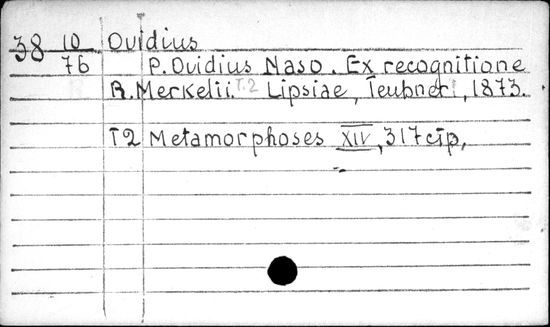 38 10 Ovidius
76 P. Ovidius Naso. Ex recognitione
R. Merkelii. T.2 Lipsiae, Teubneri, 1873.
T2 Metamorphoses XIV, 317 стр.